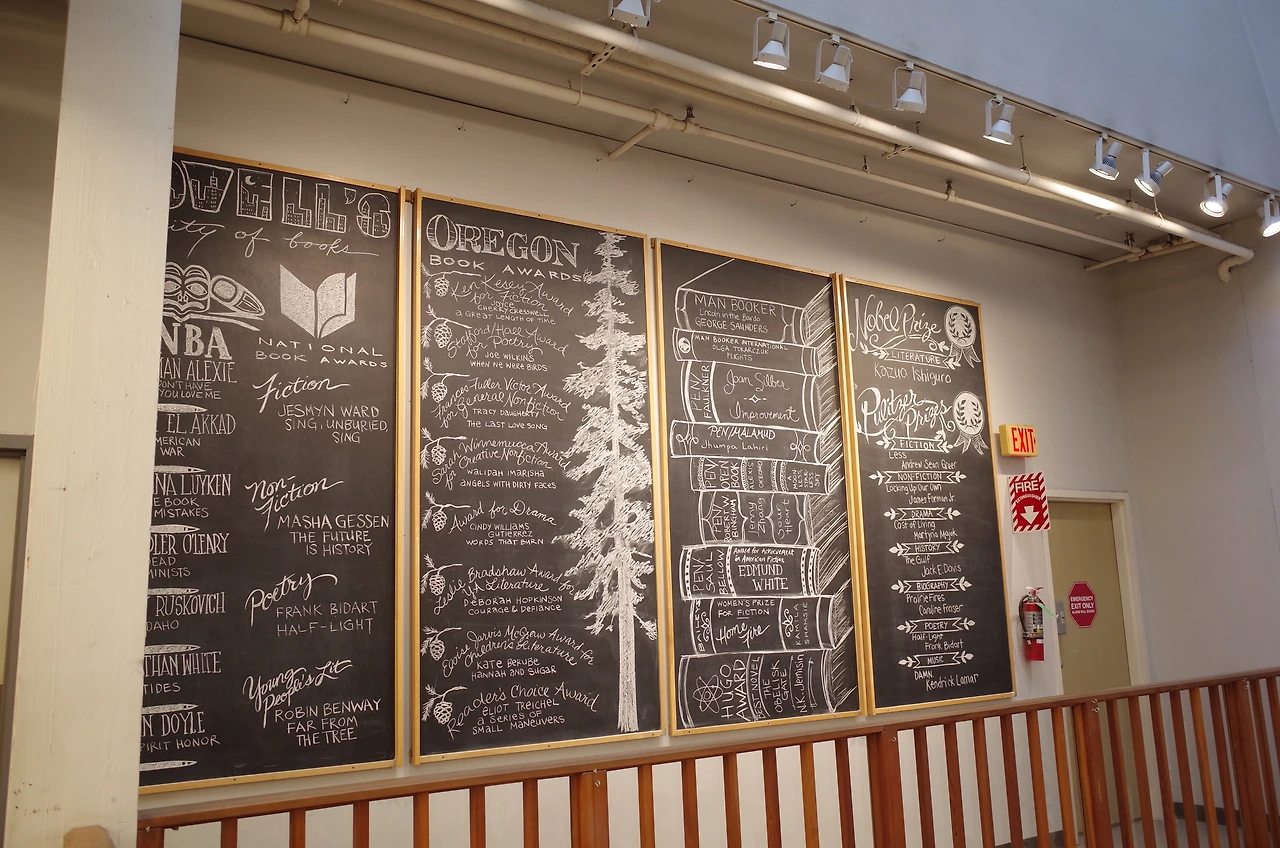 OWELL'S
ity of books
NBA
AN ALEXIE
ON'T HAVE
YOU LOVE ME
EL AKKAD
MERICAN
WAR
NA LUYKEN
E BOOK
MISTAKES
LER O'LEARY
DEAD
MINISTS
RUSKOVICH
DAHO
THAN WHITE
TIDES
N DOYLE
PIRIT HONOR
NATIONAL
BOOK AWARDS
Fiction
JESMYN WARD
SING, UNBURIED,
SING
Non-
Fiction
MASHA GESSEN
THE FUTURE
IS HISTORY
Poetry
FRANK BIDART
HALF-LIGHT
Young
People's Lit
ROBIN BENWAY
FAR FROM
THE TREE
OREGON
BOOK AWARDS
Ken Kesey Award
for Fiction
A GREAT LENGTH OF TIME
Stafford/Hall Award
for Poetry
JOE WILKINS
WHEN WE WERE BIRDS
Frances Fuller Victor Award
for General Nonfiction
TRACY DAUGHERTY
THE LAST LOVE SONG
Sarah Winnemucca Award
for Creative Nonfiction
WALIDAH IMARISHA
ANGELS WITH DIRTY FACES
Award for Drama
CINDY WILLIAMS
GUTIERREZ
WORDS THAT BURN
Leslie Bradshaw Award for
YA Literature
DEBORAH HOPKINSON
COURAGE & DEFIANCE
Eloise Jarvis McGraw Award for
Children's Literature
KATE BERUBE
HANNAH AND SUGAR
Reader's Choice Award
ELIOT TREICHEL
A SERIES OF
SMALL MANEUVERS
MAN BOOKER
Lincoln in the Bardo
GEORGE SAUNDERS
MAN BOOKER INTERNATIONAL
OLGA TOKARCZUK
FLIGHTS
PEN/
FAULKNER
Joan Silber
Improvement
PEN/MALAMUD
Jhumpa Lahiri
PEN
OPEN
BOOK
PEN
ROBERT W.
BINGHAM
Jenny
Zhang
Sour
Heart
PEN/
SAUL
BELLOW
Award for Achievement
in American Fiction
EDMUND
WHITE
BAILEYS
WOMEN'S PRIZE
FOR FICTION
Home Fire
KAMILA
SHAMSIE
HUGO
AWARD
BEST NOVEL
THE
OBELISK
GATE
N.K. Jemisin
Nobel Prize
LITERATURE
Kazuo Ishiguro
Pulitzer
Prizes
FICTION
Less
Andrew Sean Greer
NON-FICTION
Locking Up Our Own
James Forman Jr.
DRAMA
Cost of Living
Martyna Majok
HISTORY
The Gulf
Jack E. Davis
BIOGRAPHY
Prairie Fires
Caroline Fraser
POETRY
Half-Light
Frank Bidart
MUSIC
DAMN.
Kendrick Lamar
EXIT
FIRE
EXTINGUISHER
EMERGENCY
EXIT ONLY